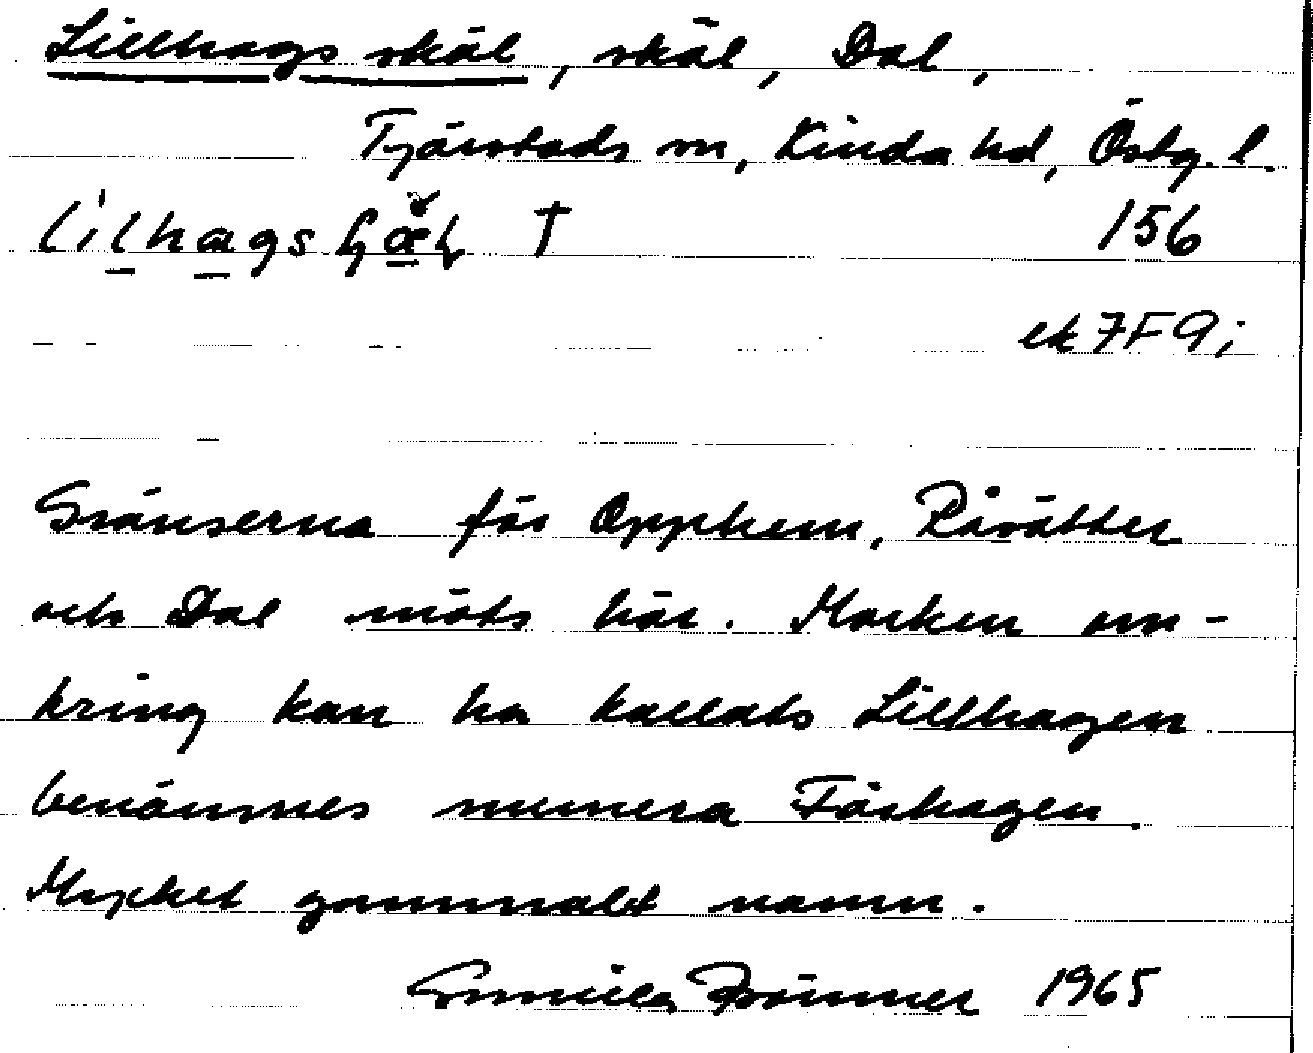 Lillhags skäl, skäl, Dal,
Tjärstads sn, Kinda hd, Östg. l.
156
ek 7F9i
Gränserna för Opphem, Råvätter
och Dal möts här. Marken om-
kring kan ha kallats Lillhagen
benämnes numera Fårhagen.
Mycket gammalt namn.
Gunilla Brönner 1965